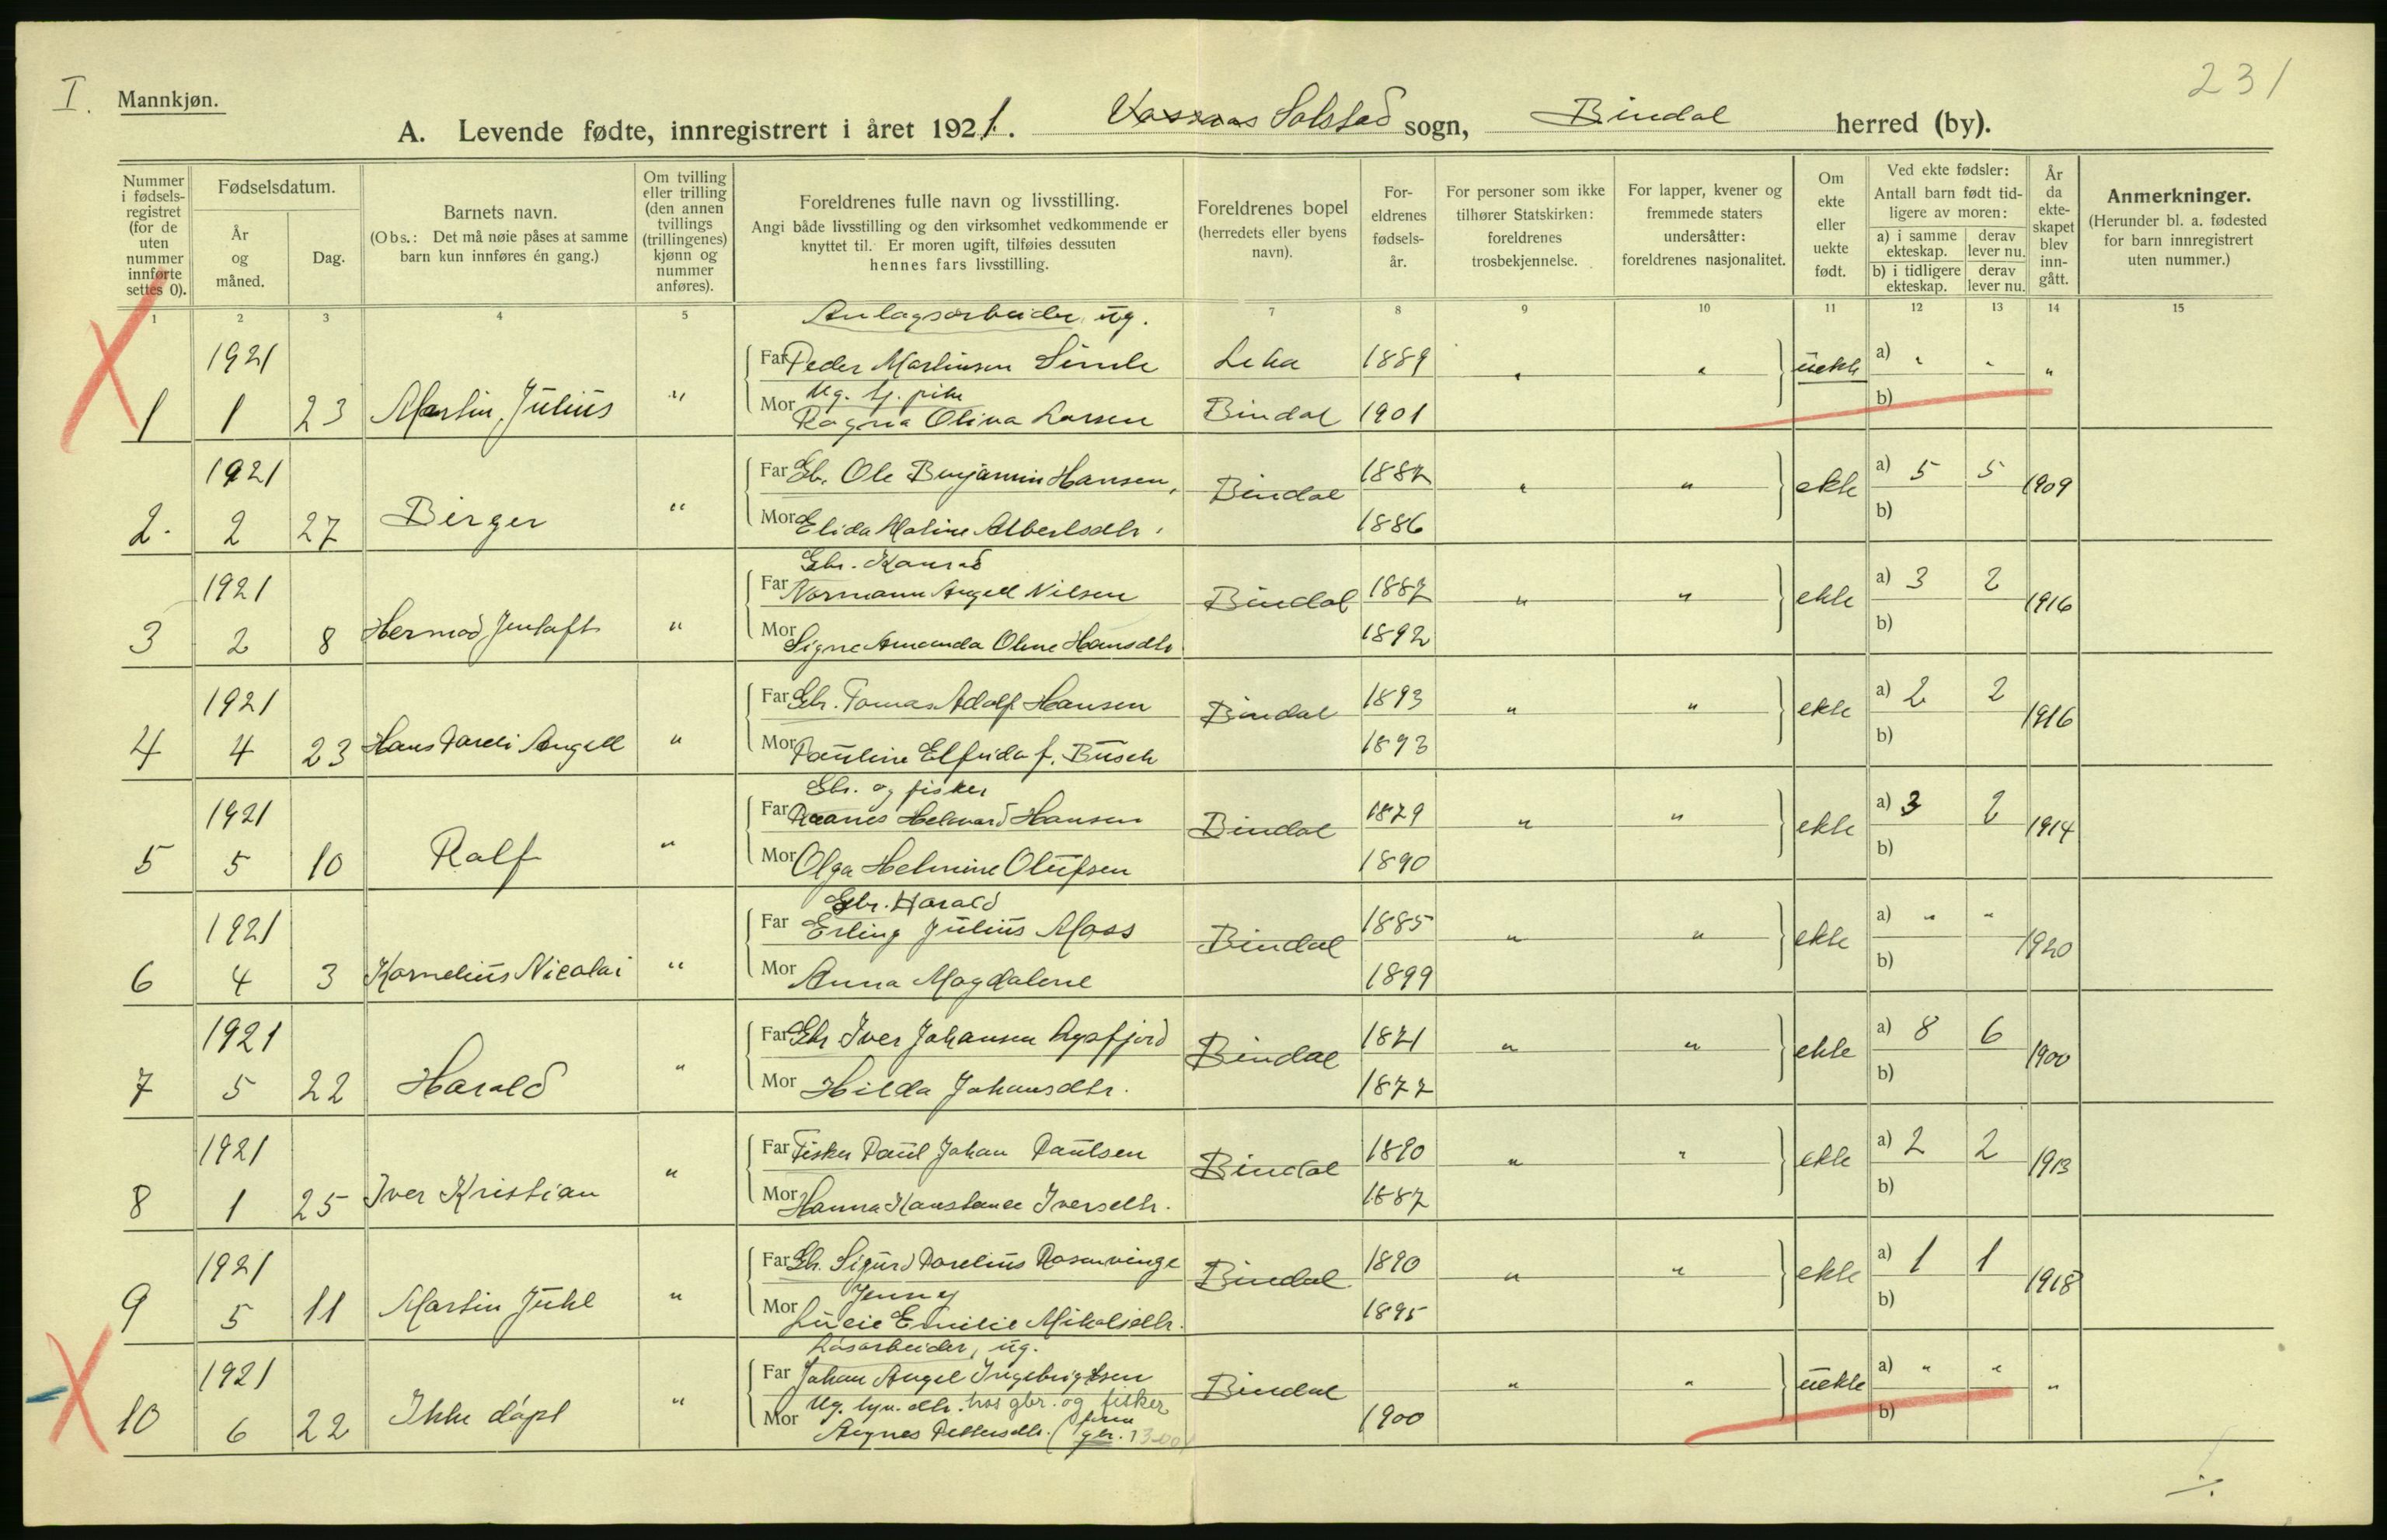 I. Mannkjøn. 231
A. Levende fødte, innregistrert i året 1921. Solstad sogn, Bindal herred (by).
Nummer i fødselsregistret (for de uten nummer innførte settes 0).
Fødselsdatum.
År og måned.
Dag.
Barnets navn.
(Obs.: Det må nøie påses at samme barn kun innføres én gang.)
Om tvilling eller trilling (den annen tvillings (trillingenes) kjønn og nummer anføres).
Foreldrenes fulle navn og livsstilling.
Angi både livsstilling og den virksomhet vedkommende er knyttet til. Er moren ugift, tilføies dessuten hennes fars livsstilling.
Foreldrenes bopel (herredets eller byens navn).
Foreldrenes fødselsår.
For personer som ikke tilhører Statskirken: foreldrenes trosbekjennelse.
For lapper, kvener og fremmede staters undersåtter: foreldrenes nasjonalitet.
Om ekte eller uekte født.
Ved ekte fødsler:
Antall barn født tidligere av moren:
a) i samme ekteskap. derav lever nu.
b) i tidligere ekteskap. derav lever nu.
År da ekteskapet blev inngått.
Anmerkninger.
(Herunder bl. a. fødested for barn innregistrert uten nummer.)
1 2 3 4 5 7 8 9 10 11 12 13 14 15
Anlagsarbeider, ug.
1921 Far Peder Martinsen Simle Leka 1889 " " uekte a) " " "
Ug. tj. pike
1 1 23 Martin, Julius " Mor Ragna Oliva Larsen Bindal 1901 b)
1921 Far Gb. Ole Benjamin Hansen, Bindal 1882 " " ekte a) 5 5 1909
2. 2 27 Birger " Mor Elida Maline Albertsdtr. 1886 b)
Gbr. Konrad
1921 Far Normann Angell Nilsen Bindal 1887 " " ekte a) 3 2 1916
3 2 8 Hermod Jentoft " Mor Signe Amanda Oline Hansdtr 1892 b)
1921 Far Gbr. Tomas Adolf Hansen Bindal 1893 " " ekte a) 2 2 1916
4 4 23 Hans Pareli Angell " Mor Pauline Elfrida f. Busch 1893 b)
Gbr. og fisker
1921 Far Helmard Hansen Bindal 1879 " " ekte a) 3 2 1914
5 5 10 Ralf " Mor Olga Helmine Olufsen 1890 b)
Gbr. Harald
1921 Far Erling Julius Moss Bindal 1885 " " ekte a) " " 1920
6 4 3 Kornelius Nicolai " Mor Anna Magdalene 1899 b)
1921 Far Gbr Iver Johansen Lysfjord Bindal 1871 " " ekte a) 8 6 1900
7 5 22 Harald " Mor Hilda Johansdtr. 1877 b)
1921 Far Fisker Paul Johan Paulsen Bindal 1890 " " ekte a) 2 2 1913
8 1 25 Iver Kristian " Mor Hanna Konstance Iversdtr. 1887 b)
1921 Far Gbr. Sigurd Parelius Rosenvinge Bindal 1890 " " ekte a) 1 1 1918
Jenny
9 5 11 Martin Juhl " Mor Lucie Emilie Mikalsdtr. 1895 b)
Løsarbeider, ug.
1921 Far Johan Angel Ingebrigtsen Bindal " " uekte a) " " "
Ug. hjv. dtr. hos gbr. og fisker
10 6 22 Ikke døpt " Mor Agnes Pettersdtr. (faren gbr. 1300) 1900 b)